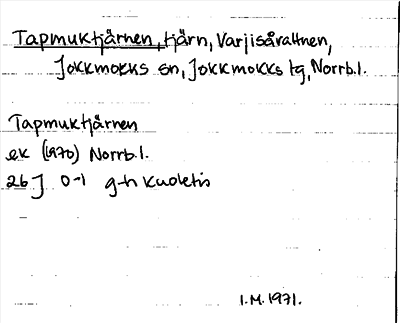 Tapmuktjärnen, tjärn, Varjisårattnen,
Jokkmokks sn, Jokkmokks tg, Norrb.l.
Tapmuktjärnen
ek (1970) Norrb.l.
26J 0-1 g-h Kuoletis
I.M. 1971.